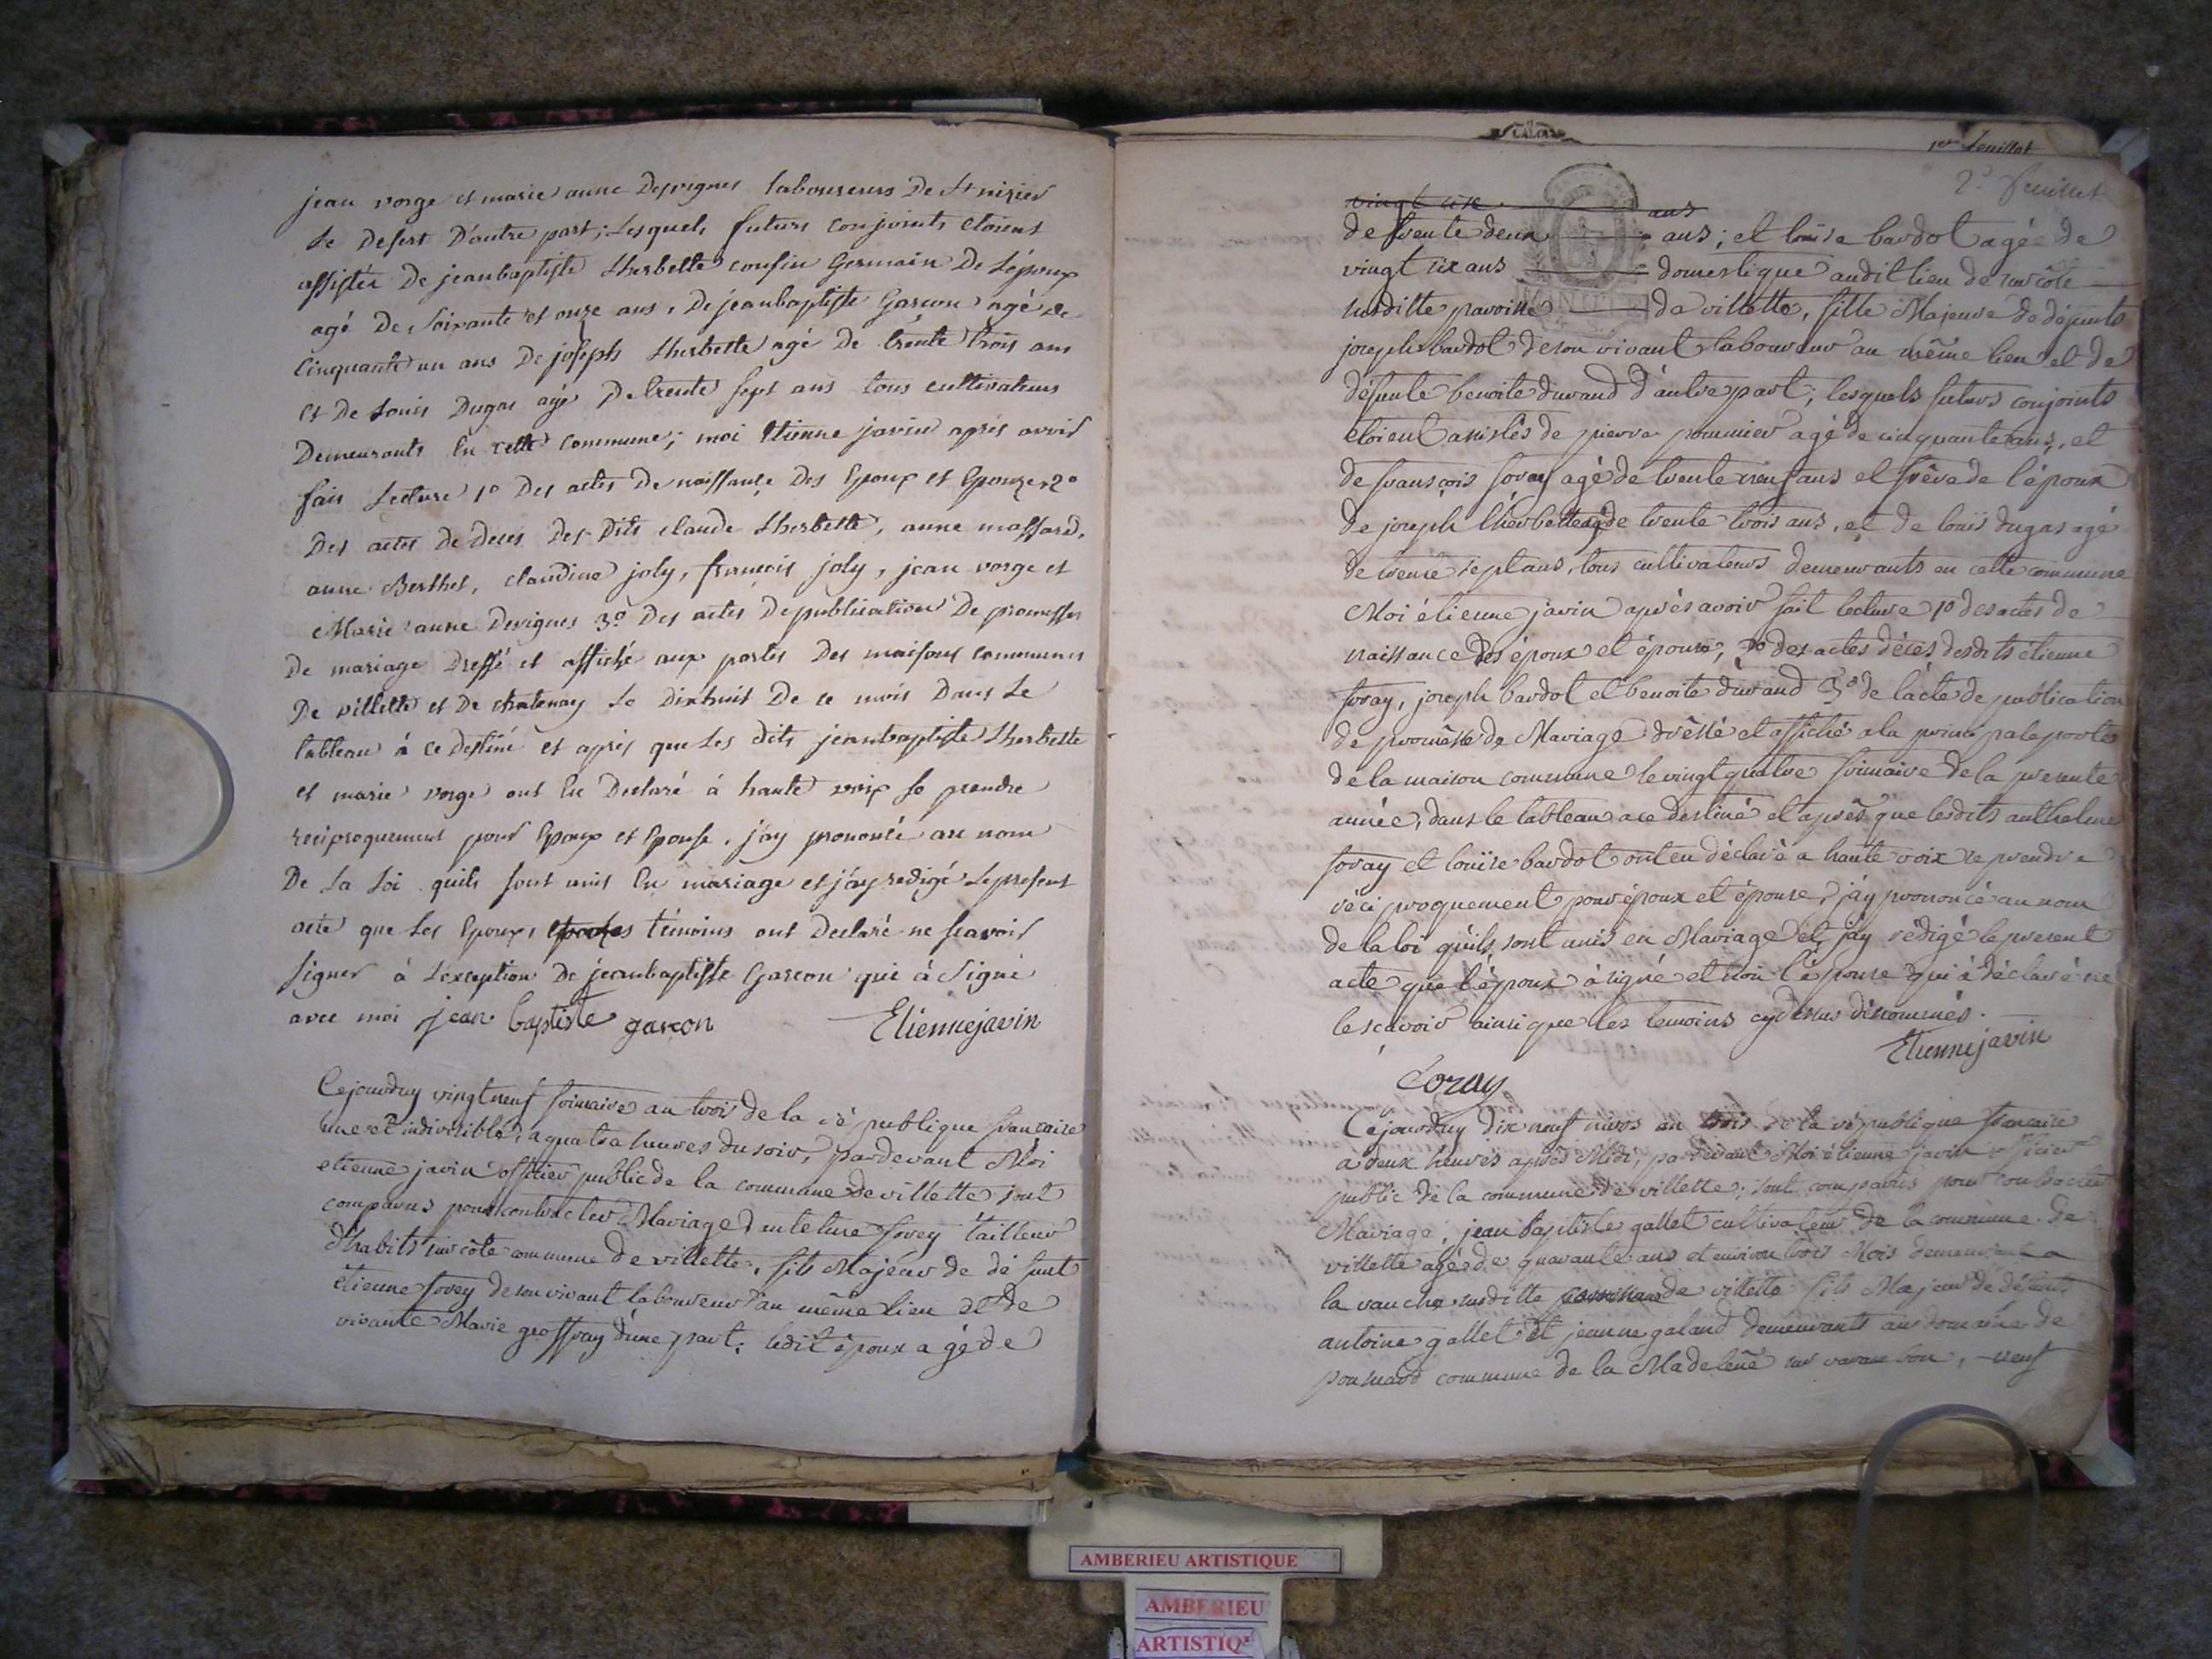 jean vorge et marie anne Desvignes laboureurs De St nizier
Le Desert D'autre part; Lesquels futurs conjoints étoient
assistés De jeanbaptiste Lherbette cousin Germain De L'époux
agé De soixante et onze ans, De jeanbaptiste Garcon agé de
cinquante un ans De joseph Lherbette agé De trente trois ans
et De Louis Dugas agé De trente sept ans tous cultivateurs
Demeurants En cette commune; moi Etienne javin aprés avoir
fais Lecture 1° Des actes De naissance Des Epoux et Epouze 2°
Des actes De Deces Des Dits claude Lherbette, anne massard,
anne Berthet, claudine joly, francois joly, jean vorge et
Marie anne Devignes 3° Des actes De publication De promesses
De mariage Dressé et affiché aux portes Des maisons communes
De villette et De chatenay Le Dixhuit De ce mois Dans Le
tableau à ce Destiné et aprés que Les dits jeanbaptiste Lherbette
et marie vorge ont En Declaré à haute voix se prendre
reciproquement pour Epoux et Epouse, j'ay prononcé au nom
De La Loi quils sont unis En mariage et j'ay redigé Le present
acte que Les Epoux, témoins ont Declaré ne scavoir
signer à L'exception De jeanbaptiste Garcon qui à signé
avec moi jean baptiste garcon Etiennejavin
Cejourduy vingt neuf frimaire an trois de la république francaise
une et indivisible, a quatre heures du soir, pardevant Moi
etienne javin officier public de la commune de villette sont
comparus pour contracter Mariage antelme forey tailleur
d'habits sur côte commune de villette, fils Majeur de défunt
étienne forey de son vivant laboureur au même lieu et de
vivante Marie groffray d'une part; ledit époux agé de
1er feuillet
2e feuillet
vingt six ans
de trente deux ans; et louise bardot agée de
vingt six ans domestique audit lieu de sur côte
susditte paroisse de villette, fille Majeure de défunts
joseph bardot de son vivant laboureur au même lieu et de
défunte benoite durand d'autre part; lesquels futurs conjoints
étoient assistés de pierre pommier agé de cinquante ans, et
de francois foray agé de trente neuf ans et frère de l'époux
de joseph l'herbette agé de trente trois ans, et de louis dugas agé
de trente sept ans, tous cultivateurs demeurants en cette commune
Moi étienne javin après avoir fait lecture 1° des actes de
naissance des époux et épouse, 2° des actes décés desdits étienne
foray, joseph bardot et benoite durand 3° de l'acte de publication
de promesse de Mariage dréssé et affiché a la principale porte
de la maison commune le vingt quatre frimaire de la presente
année, dans le tableau a ce destiné et après que lesdits anthelme
foray et louise bardot ont en déclaré a haute voix se prendre
réciproquement pour époux et épouse, j'ay prononcé au nom
de la loi quils sont unis en Mariage et j'ay rédigé le present
acte que l'époux à signé et non l'épouse qui à déclaré ne
le scavoir ainsi que les temoins cy dessus dénommés.
Etiennejavin
foray
Cejourduy dix neuf nivos an trois de la république francaise
a deux heures après Midi, pardevant Moi étienne javin officier
public de la commune de villette; sont comparus pour contracter
Mariage; jean baptiste gallet cultivateur de la commune de
villette agé de quarante ans et environ trois Mois demeurant a
la vauche susditte commune de villette fils Majeur de défunts
antoine gallet et jeanne galand demeurants au domaine de
commune de la Madeleine sur varambon, neuf
AMBERIEU ARTISTIQUE
AMBERIEU
ARTISTIQ